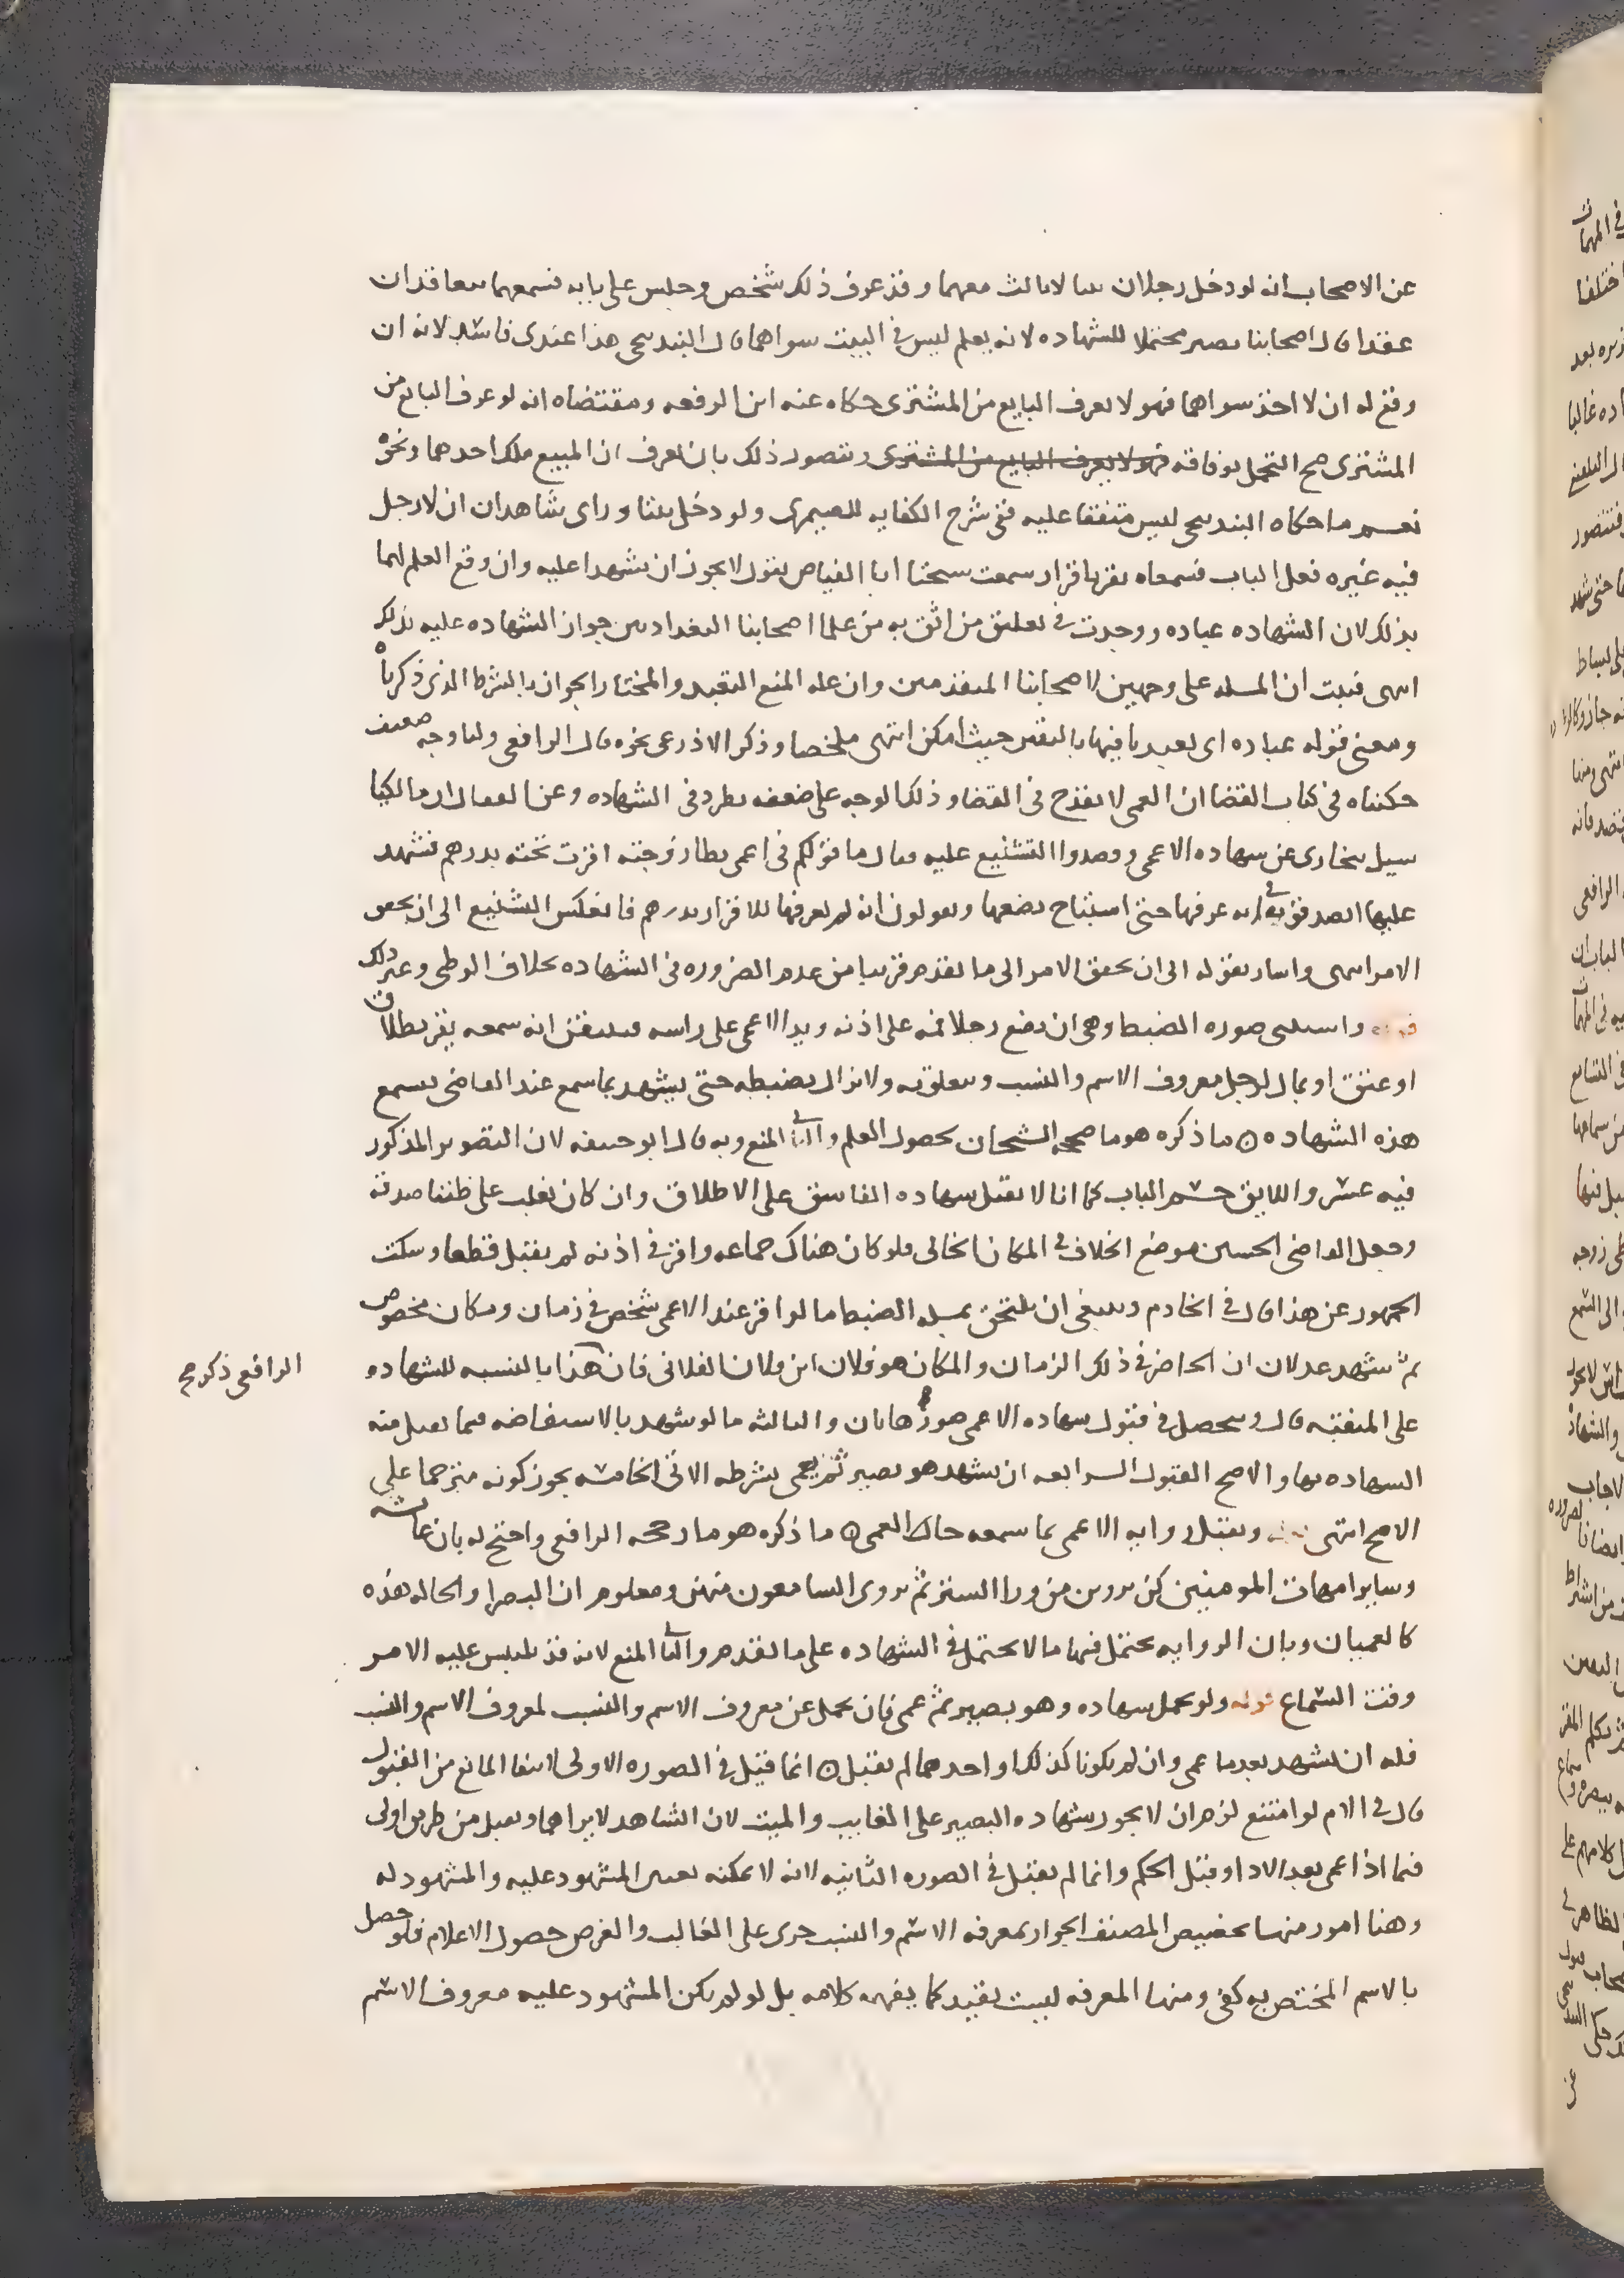 عن الاصحاب انه لو دخل رجلان بيتا لا ثالث معهما وقد عرف ذلك شخص وجلس على بابه فسمعهما يتعاقدان
عقدا قال اصحابنا يصير محتملا للشهاده لانه يعلم ليس في البيت سواهما قال البندنيجي هذا عندي فاسد لانه ان
وقع له ان لا احد سواهما فهو لا يعرف البايع من المشتري حكاه عنه ابن الرفعه ومقتضاه انه لو عرف البايع من
المشتري صح التحمل بوفاقه فهو لا يعرف البايع من المشتري ويتصور ذلك بان يعرف ان المبيع ملك احدهما ونحوه
نعم ما حكاه البندنيجي ليس متفقا عليه ففي شرح الكفايه للصيمري ولو دخل بيتا وراى شاهدان ان لا رجل
فيه غيره فعلى الباب فسمعاه يقر باقرار سمعت شيخنا ابا الفياض يقول لا يجوز ان يشهدا عليه وان وقع العلم لهما
بذلك لان الشهاده عباده ووجدت في تعليق من اثق به من علما اصحابنا البغداديين جواز الشهاده عليه بذلك
انتهى فثبت ان المسله على وجهين لاصحابنا المتقدمين وان عله المنع التعبد والمختار الجواز بالشرط الذي ذكرناه
ومعنى قوله عباده اي تعبدنا فيها باليقين حيث امكن انتهى ملخصا وذكر الاذرعي نحوه قال الرافعي ولنا وجه ضعيف
حكيناه في كتاب القضا ان العمى لا يقدح في القضا وذلك الوجه على ضعفه يطرد في الشهاده وعن القفال ان مالكيا
سيل ببخارى عن شهاده الاعمى وقصدوا التشنيع عليه فقال ما قولكم في اعمى يطا زوجته اقرت تحته بدرهم فشهد
عليها اتصدقونه في انه عرفها حتى استباح بضعها وتقولون انه لم يعرفها للاقرار بدرهم فانعكس التشنيع الى ان يحقق
الامر انتهى واشار بقوله الى ان يحقق الامر الى ما تقدم قريبا من عدم الضروره في الشهاده بخلاف الوطي وغير ذلك
قوله واستثنى صوره الضبط وهي ان يضع رجل فمه على اذنه ويد الاعمى على راسه فيتيقن انه سمعه يقر بطلاق
او عتق او بمال لرجل معروف الاسم والنسب ويتعلق به ولا يزال يضبطه حتى يشهد بما سمع عند القاضي يسمع
هذه الشهاده ما ذكره هو ما صححه الشيخان بحصول العلم والثاني المنع وبه قال ابو حنيفه لان التصوير المذكور
فيه عسر واللايق حسم الباب كما انا لا نقبل شهاده الفاسق على الاطلاق وان كان يغلب على ظننا صدقه
وجعل القاضي الحسين موضع الخلاف في المكان الخالي فلو كان هناك جماعه واقر في اذنه لم يقبل قطعا وسكت
الجمهور عن هذا قال في الخادم وينبغي ان يلتحق بمسله الضبط ما لو اقر عند الاعمى شخص في زمان ومكان مخصوص
ثم شهد عدلان ان الحاضر في ذلك الزمان والمكان هو فلان ابن فلان الفلاني فان هذا بالنسبه للشهاده
الرافعي ذكر صح
على المنفيه قال ويتحصل في قبول شهاده الاعمى صور هاتان والثالثه ما لو شهد بالاستفاضه فيما تقبل منه
الشهاده بها والاصح القبول الرابعه ان يشهد هو بصير ثم يعمى بشرطه الاتي الخامسه يجوز كونه مترجما على
الاصح انتهى قوله وتقبل روايه الاعمى بما سمعه حال العمى ما ذكره هو ما رجحه الرافعي واحتج له بان عايشه
وساير امهات المومنين كن يروين من ورا الستر ثم يروي السامعون منهن ومعلوم ان البصرا والحاله هذه
كالعميان وبان الروايه يحتمل فيها ما لا يحتمل في الشهاده على ما تقدم والثاني المنع لانه قد يلبس عليه الامر
وقت السماع قوله ولو تحمل شهاده وهو بصير ثم عمى فان تحمل عن معروف الاسم والنسب لمعروف الاسم والنسب
فله ان يشهد بعد ما عمي وان لم يكونا كذلك او احدهما لم يقبل انما قبل في الصوره الاولى لانتفا المانع من القبول
قال في الام لو امتنع لزم ان لا يجوز شهاده البصير على الغايب والميت لان الشاهد لا يراهما وتقبل من طريق اولى
فيما اذا عمى بعد الادا وقبل الحكم وانما لم يقبل في الصوره الثانيه لانه لا يمكنه تعيين المشهود عليه والمشهود له
وهنا امور منها تخصيص المصنف الجواز بمعرفه الاسم والنسب جرى على الغالب والغرض حصول الاعلام فلو حصل
بالاسم المختص به كفى ومنها المعرفه ليست بقيد كما يفهمه كلامه بل لو لم يكن المشهود عليه معروف الاسم